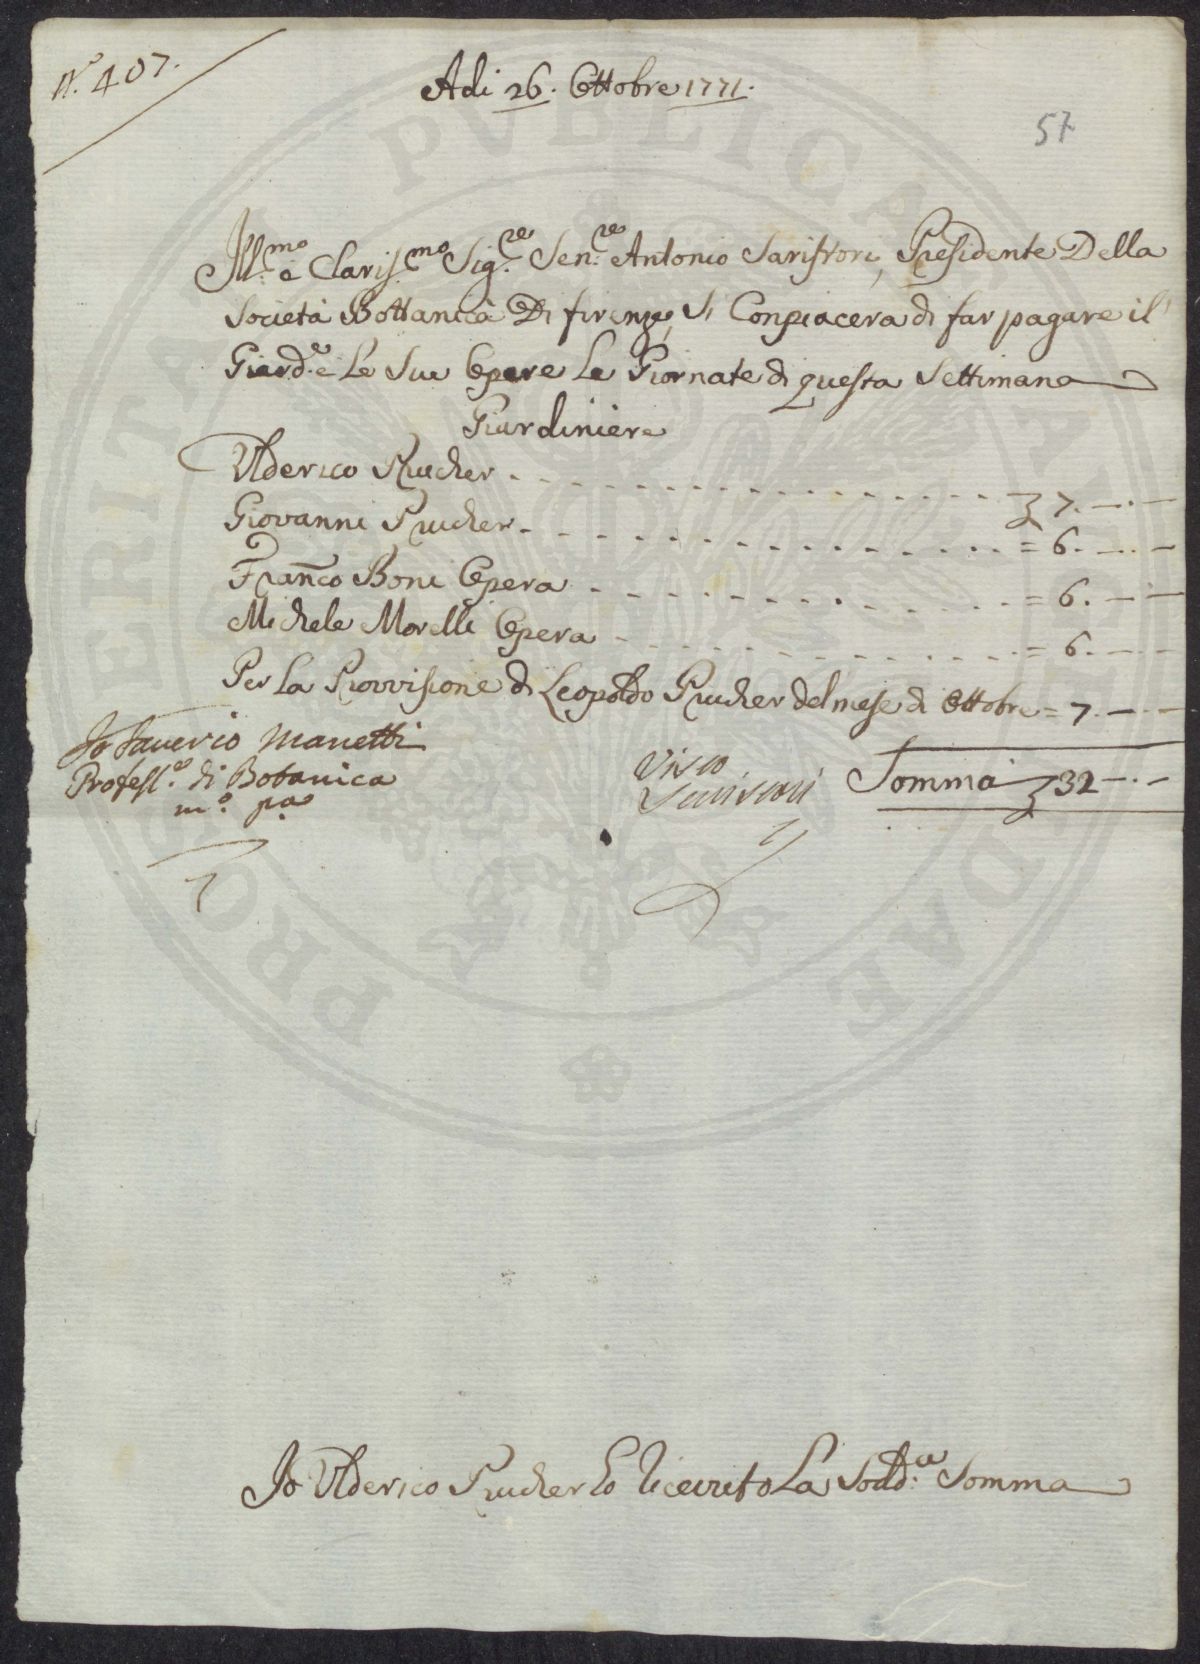 N.o 407.
Adi 26. Ottobre 1771.
57
Ill.mo e Claris.mo Sig.re Sen.re Antonio Saristori, Presidente Della
Società Bottanica Di firenze, Si Conpiacera di far pagare il
Giard.e e Le Sue Opere Le Giornate di questa Settimana
Giardiniere
Ulderico Prucher - - - 7. —.—
Giovanni Prucher - - - = 6. —.—
Fran̄co Boni Opera - - - = 6. —.—
Michele Morelli Opera - - - = 6. —.—
Per La Provvisione di Leopoldo Prucher del mese di Ottobre = 7. —.—
Io Saverio Manetti
Profess.e di Botanica
m.o pa
Visto
Somma 32 —.—
Io Ulderico Prucher ho Riceuto La Sodd.a Somma
PROSPERITATI PVBLICAE